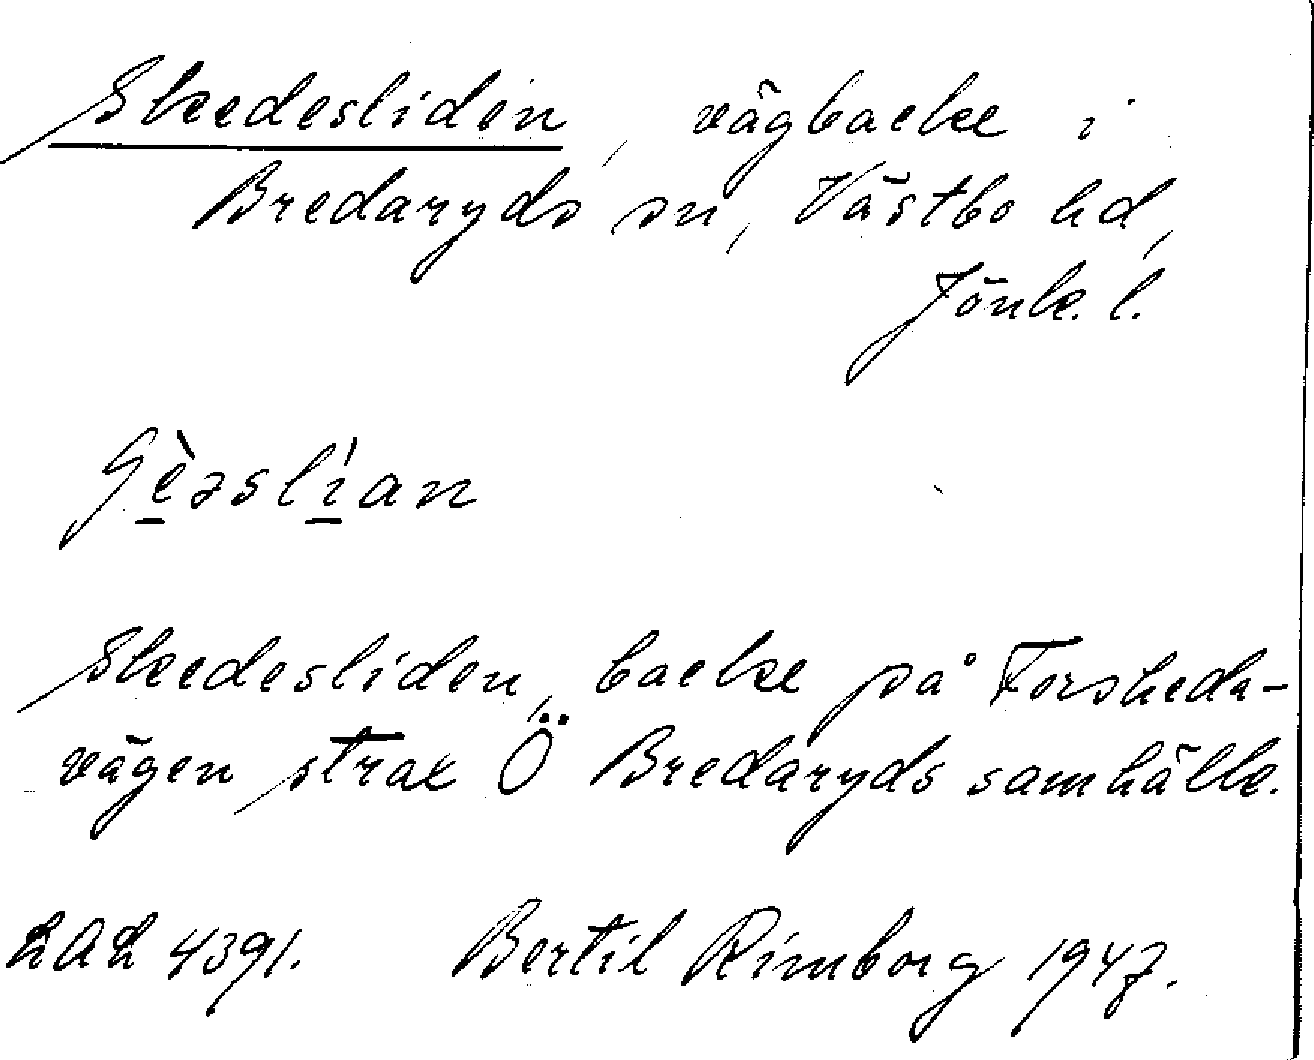 Skedesliden, vägbacke i
Bredaryds sn, Västbo hd,
Jönk. l.
Skedesliden, backe på Forsheda-
vägen strax Ö Bredaryds samhälle.
LAL 4391. Bertil Rimborg 1947.